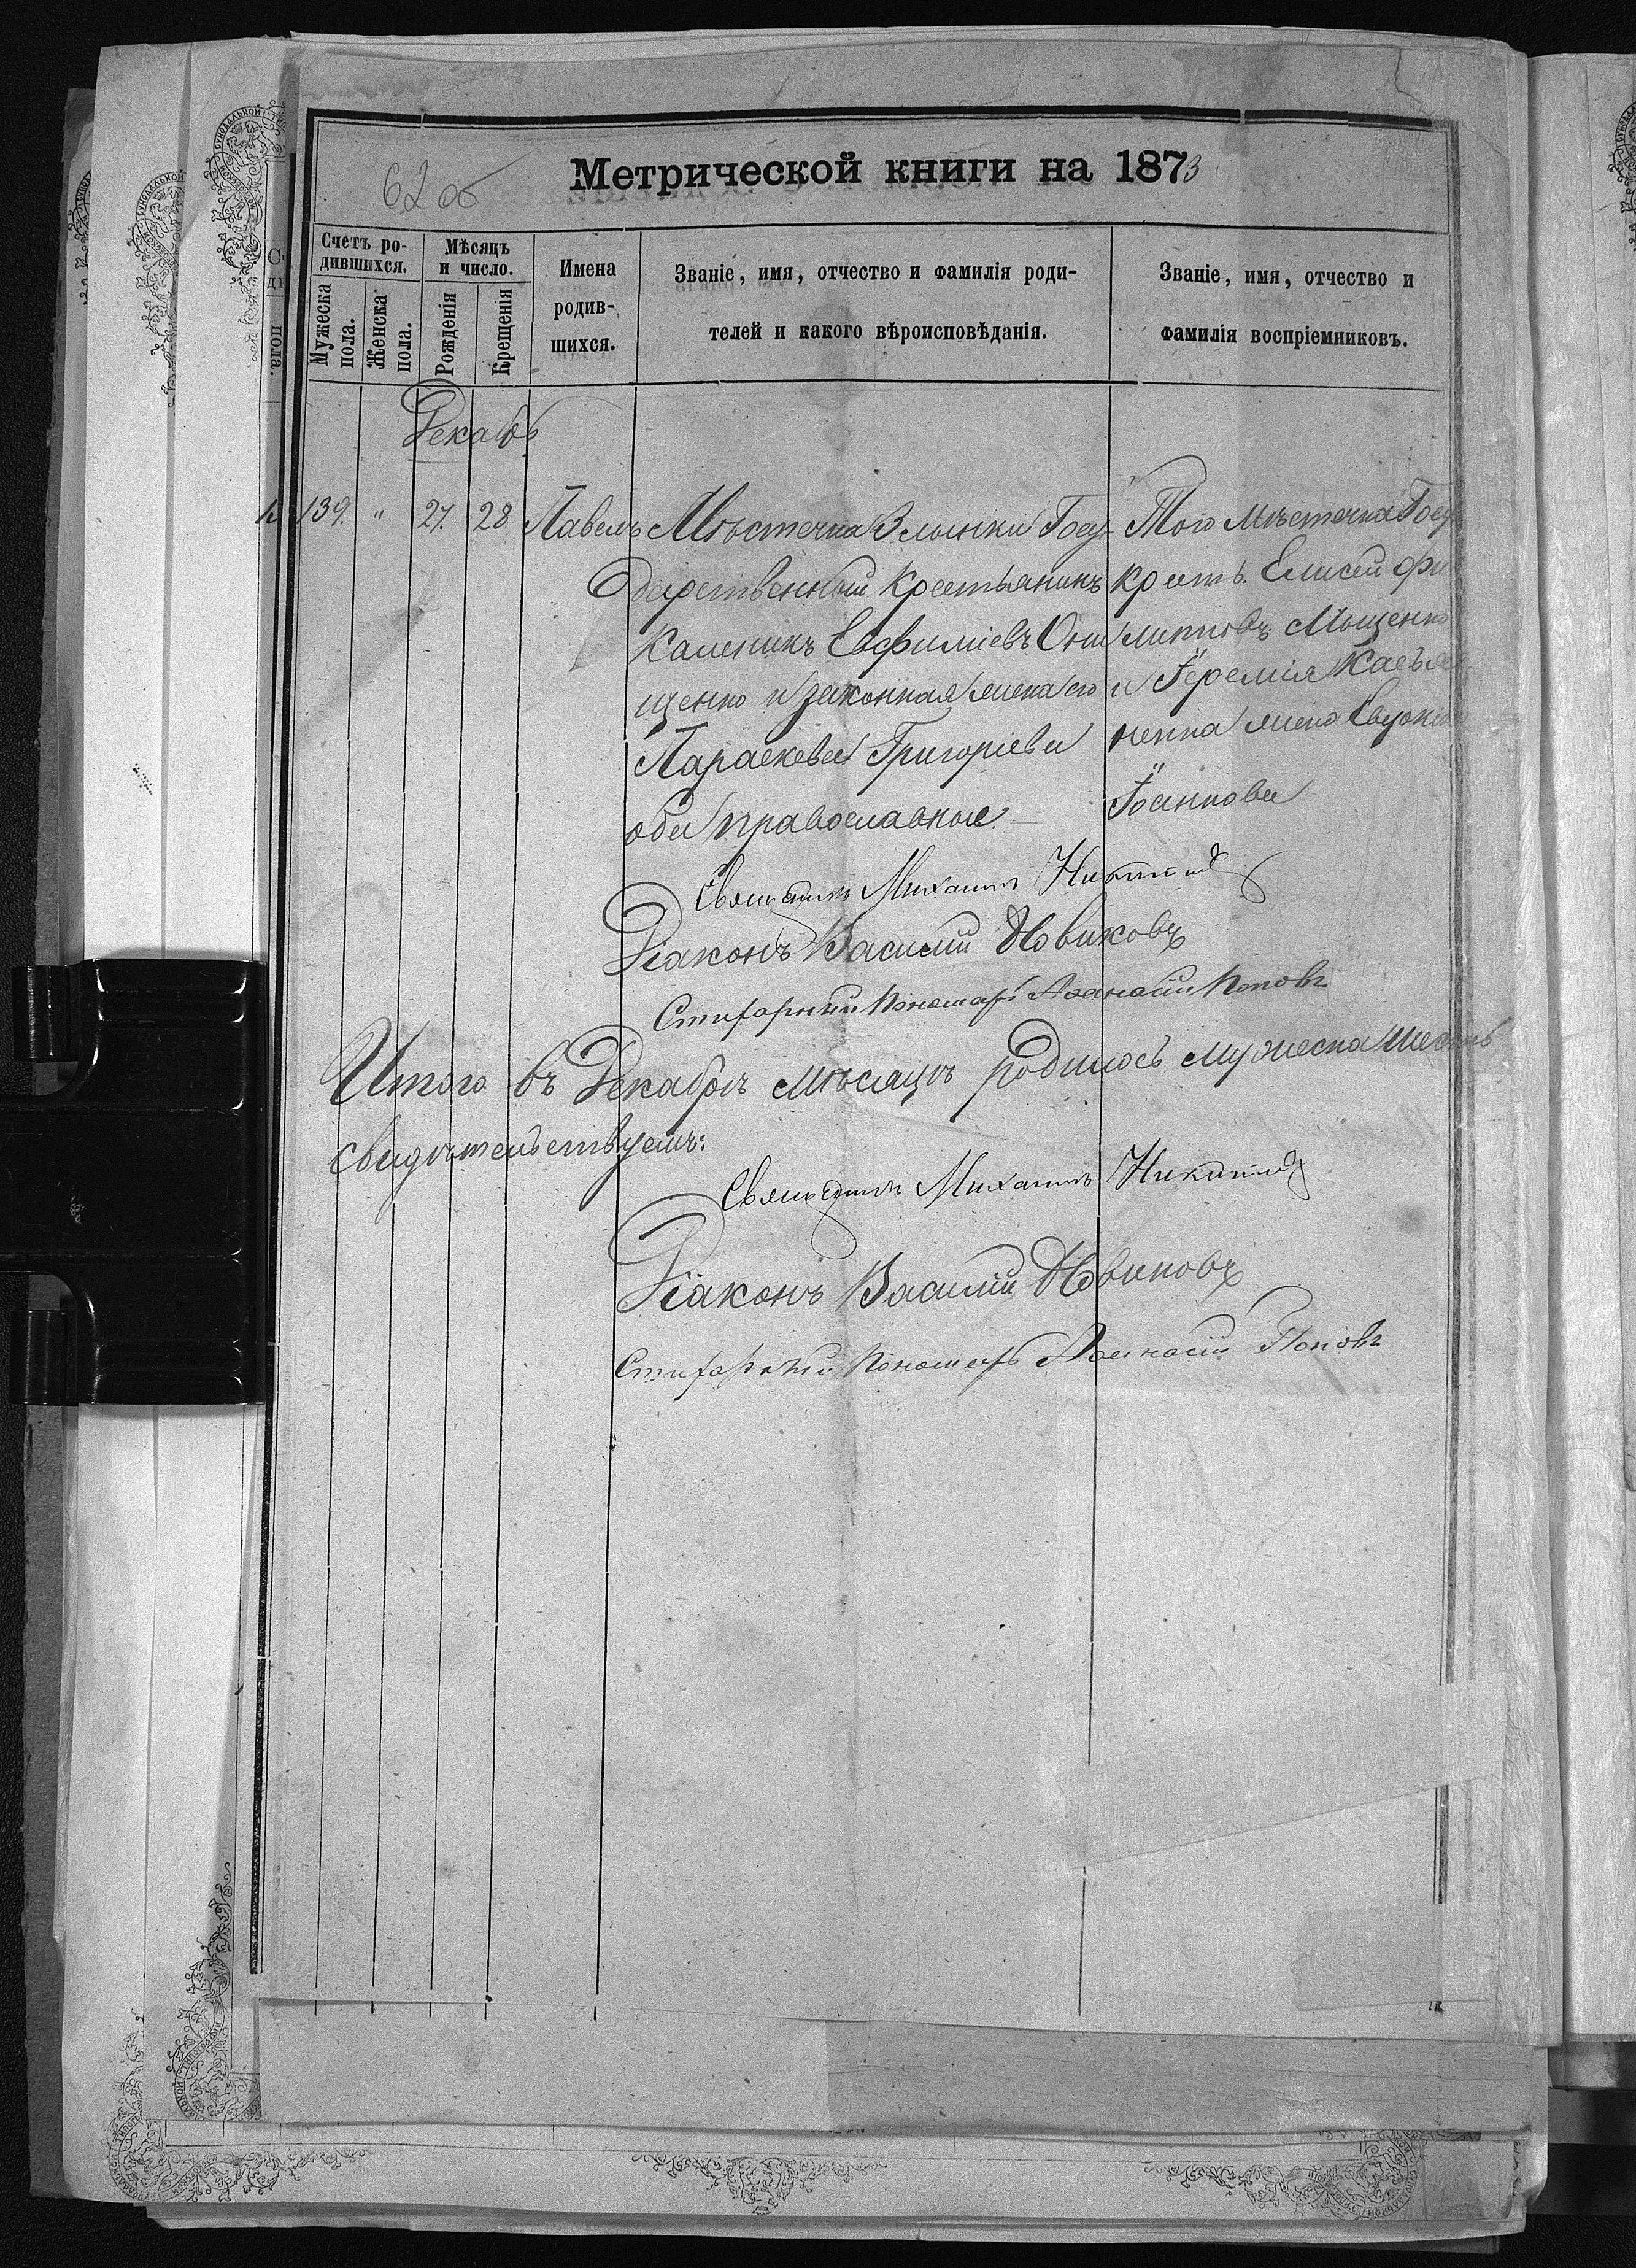 62 об
Метрической книги на 1873
Счетъ ро-
дившихся.
Мужеска пола.
Женска пола.
Мѣсяцъ
и число.
Рожденія
Крещенія
Имена
родив-
шихся.
Званіе, имя, отчество и фамилія роди-
телей и какого вѣроисповѣданія.
Званіе, имя, отчество и
фамилія воспріемниковъ.
Декабрь
139. " 27. 28 Павелъ
Мѣстечка Злынки Госу
дарственный Крестьянинъ
Каленикъ Евфиміевъ Они
щенко и законная жена его
Параскева Григоріева
оба православные.
Того мѣстечка Госу
крест. Елисей Фи
липповъ Мощенко
и Іереміи Касья
ненка жена Евдокія
Іоаннова
Священникъ Михаилъ Никитинъ
Діаконъ Василій Новиковъ
Стихарный Пономарь Аѳанасій Поповъ
Итого въ Декабрѣ мѣсяцѣ родилось мужеска шесть
свидѣтельствуемъ:
Священникъ Михаилъ Никитинъ
Діаконъ Василій Новиковъ
Стихарный Пономарь Аѳанасій Поповъ